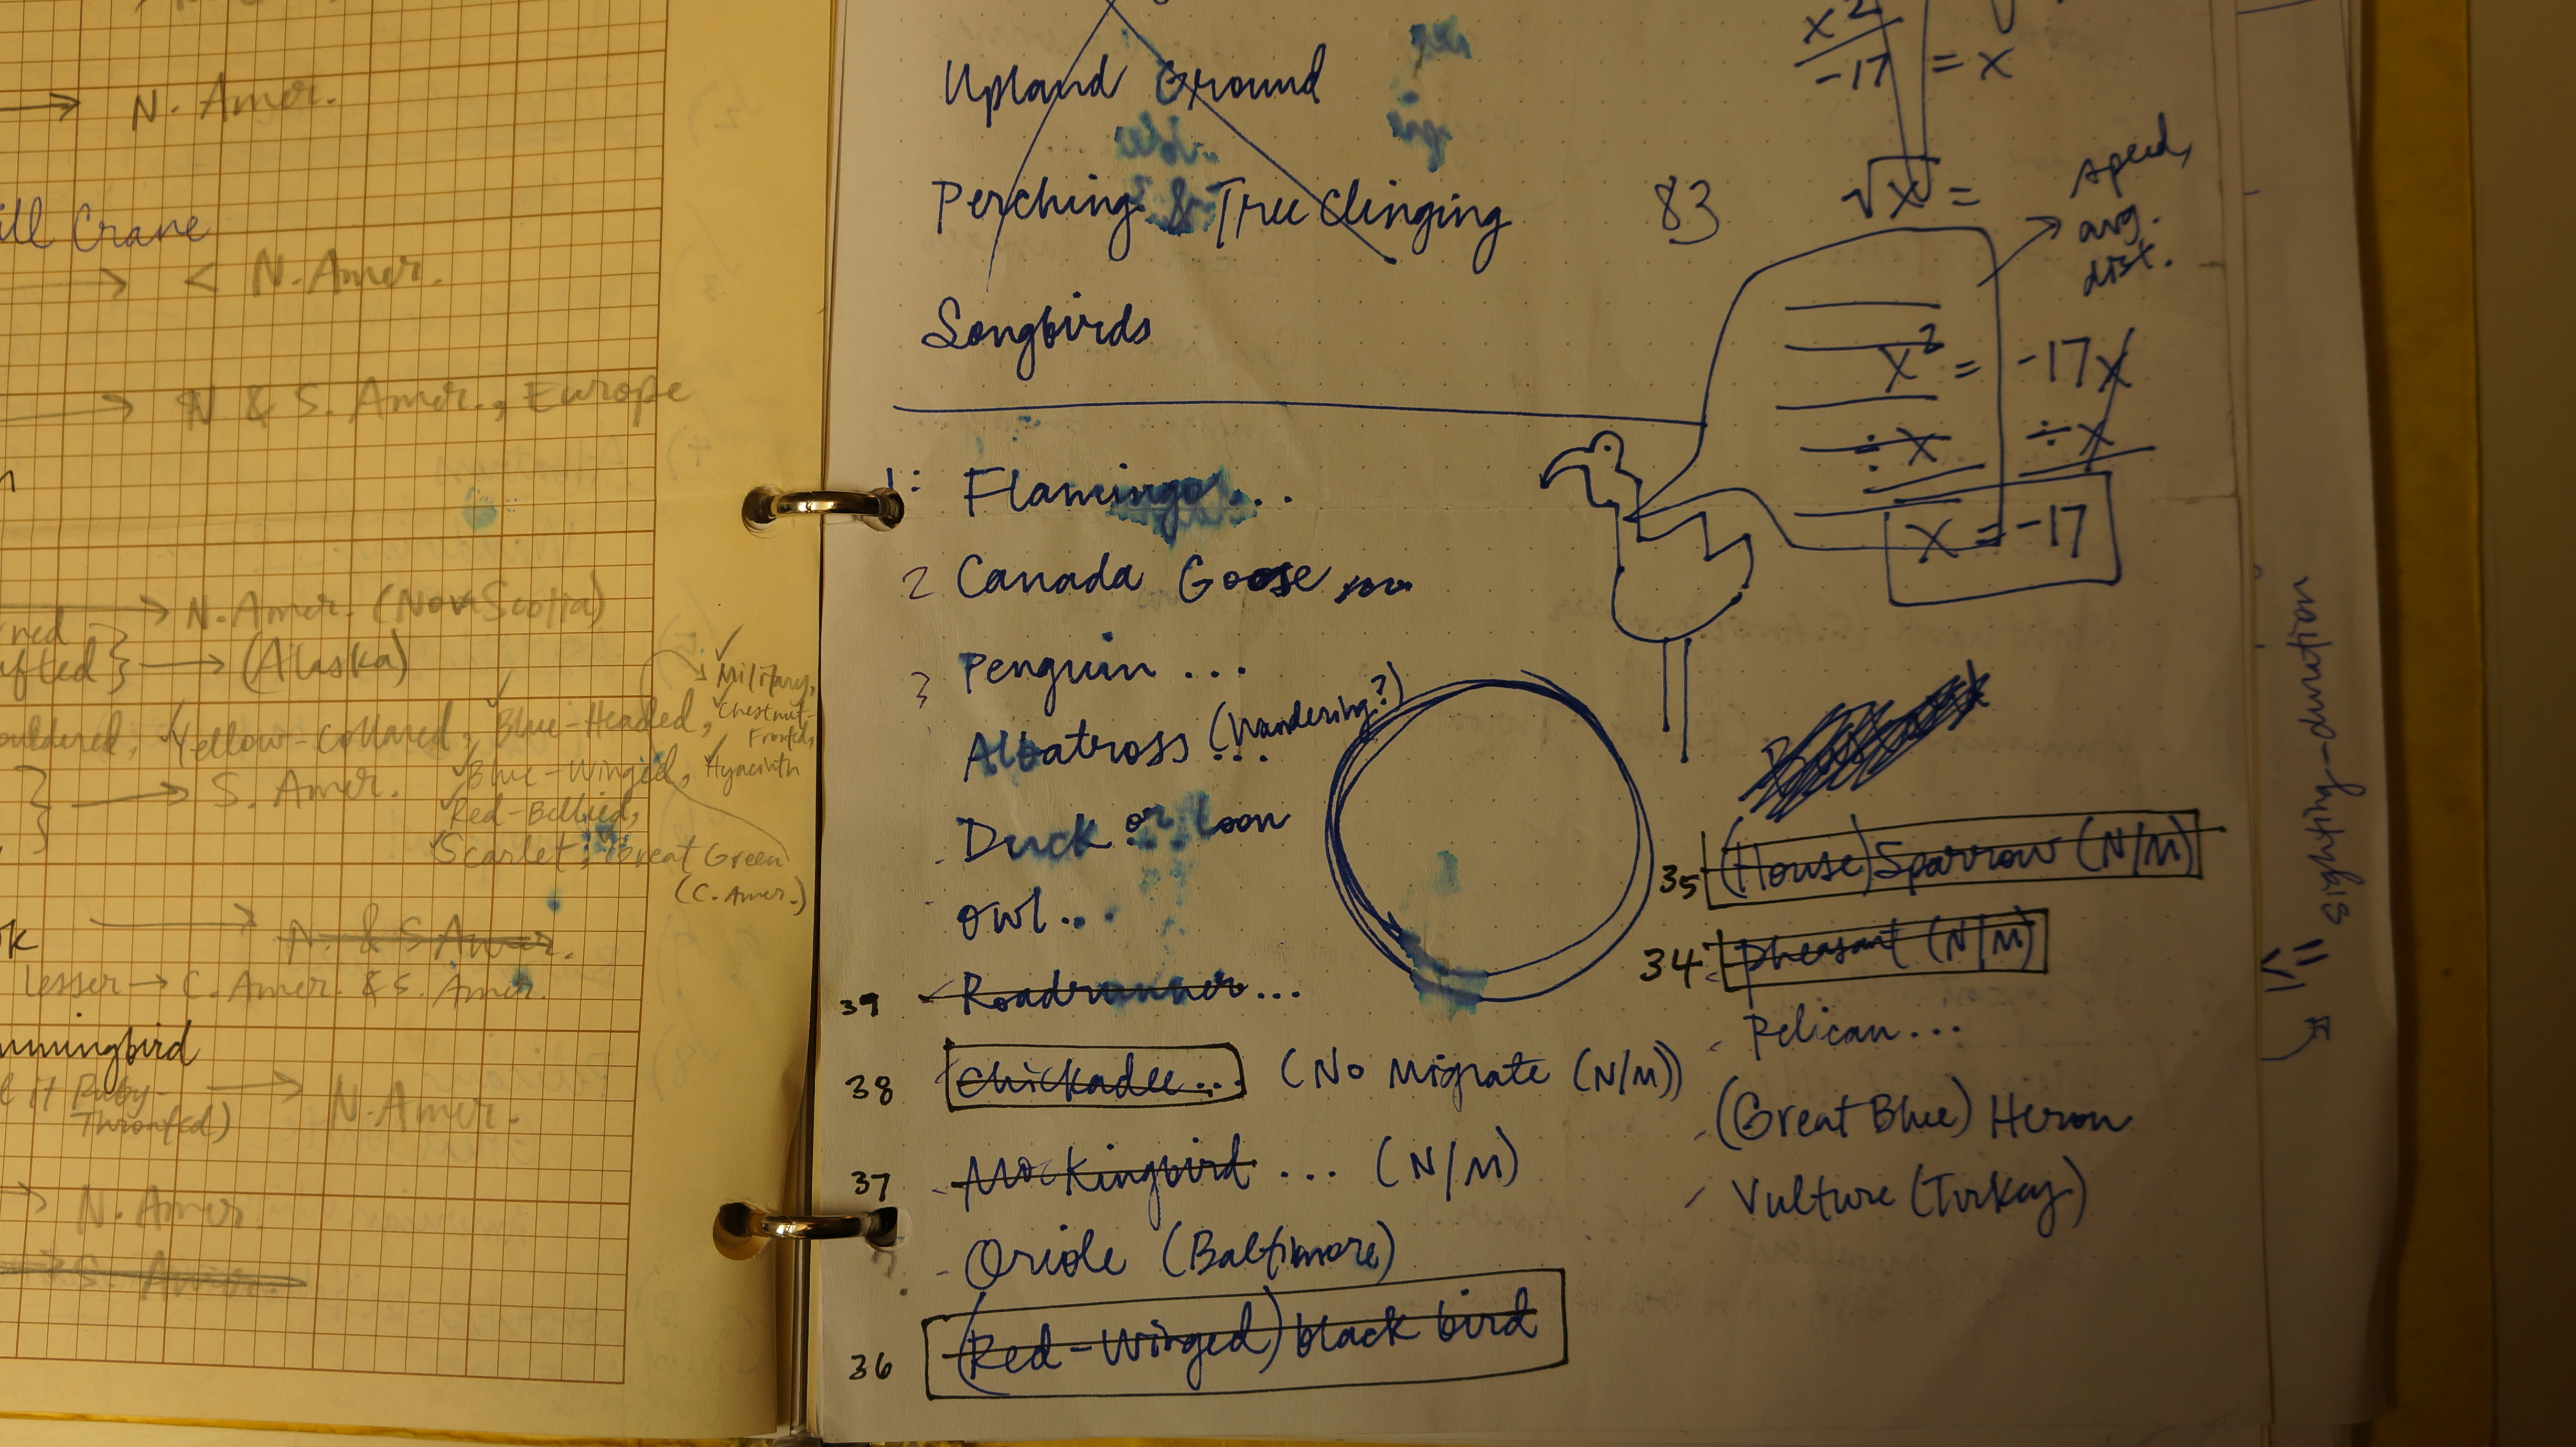 → N. Amer.
ill Crane
→ < N. Amer.
→ N & S. Amer., Europe
→ N. Amer. (Nova Scotia)
rned
ufted } → (Alaska)
✓ Military,
ouldered, ✓Yellow-Collared, ✓Blue-Headed, ✓Chestnut-
Fronted,
✓Blue-Winged, ✓Hyacinth
} → S. Amer.
✓Red-Bellied,
✓Scarlet, ✓Great Green
(C. Amer.)
→ N. & S. Amer.
Lesser → C. Amer. & S. Amer.
mmingbird
Ruby-
Throated) → N. Amer.
→ N. Amer.
→ S. Amer.
Upland Ground
Perching & Tree Clinging
Songbirds
1: Flamingo...
2 Canada Goose
3 Penguin ...
Albatross (Wandering?) ...
Duck or Loon
Owl...
39 - Roadrunner...
38 Chickadee... (No Migrate (N/M))
37 - Mockingbird ... (N/M)
- Oriole (Baltimore)
36 (Red-Winged) black bird
x²/-17 = x
83
√x =
speed,
avg.
dist.
x² = -17x
÷ x ÷ x
x = -17
35 (House) Sparrow (N/M)
34 - Pheasant (N/M)
- Pelican...
- (Great Blue) Heron
- Vulture (Turkey)
sighting-duration